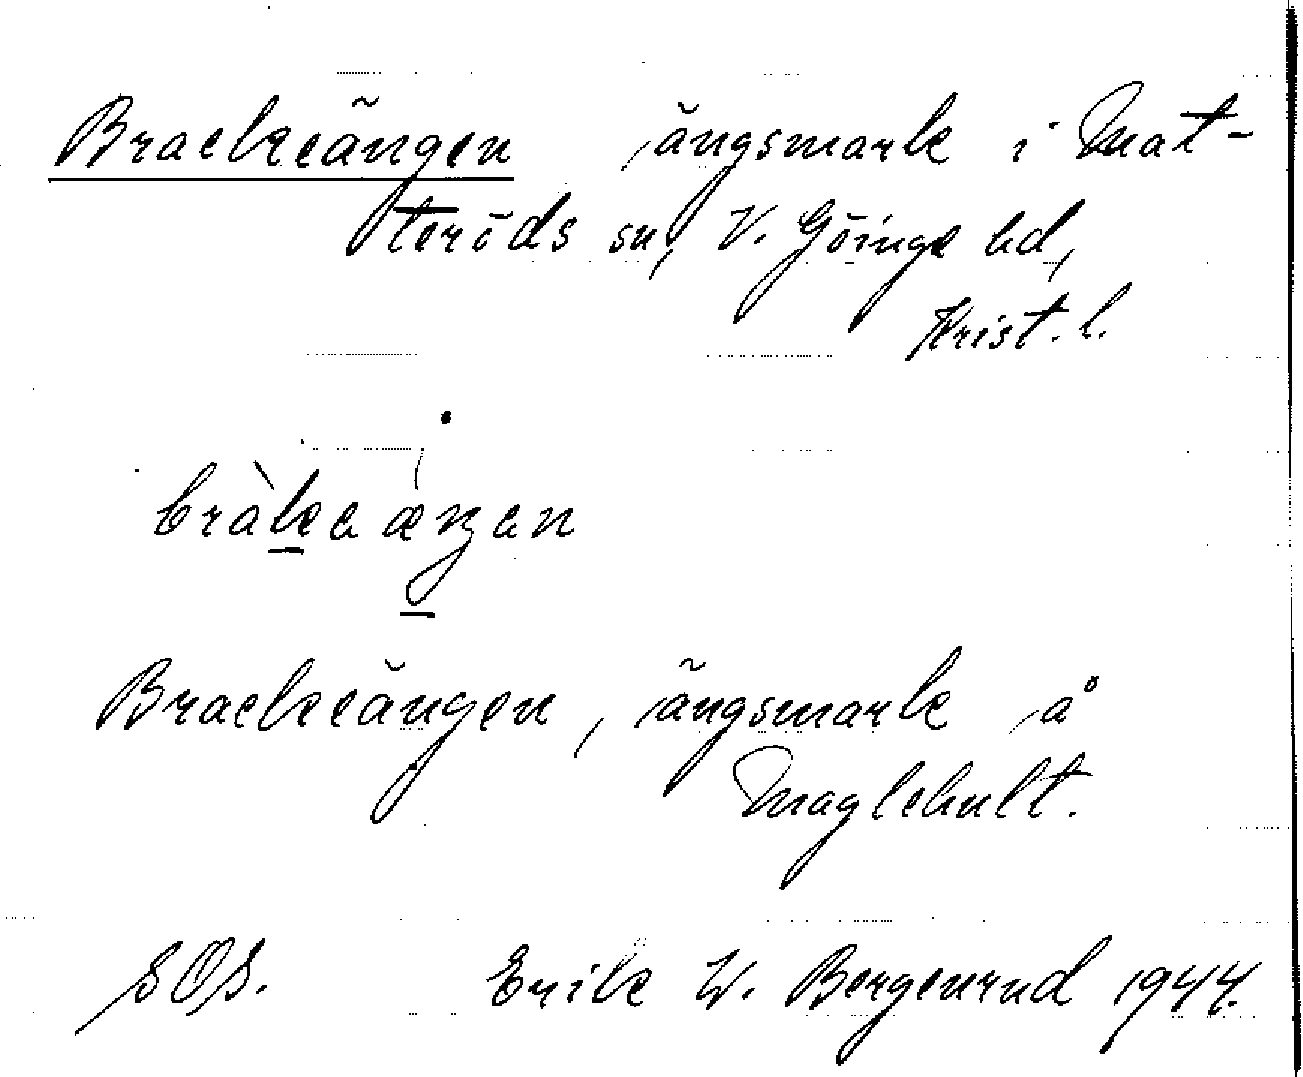 Brackeängen ängsmark i Mat-
teröds sn, V. Göinge hd,
Krist. l.
bràkaæŋan
Brackeängen, ängsmark å
Maglehult.
SOS. Erik W. Bergenrud 1944.